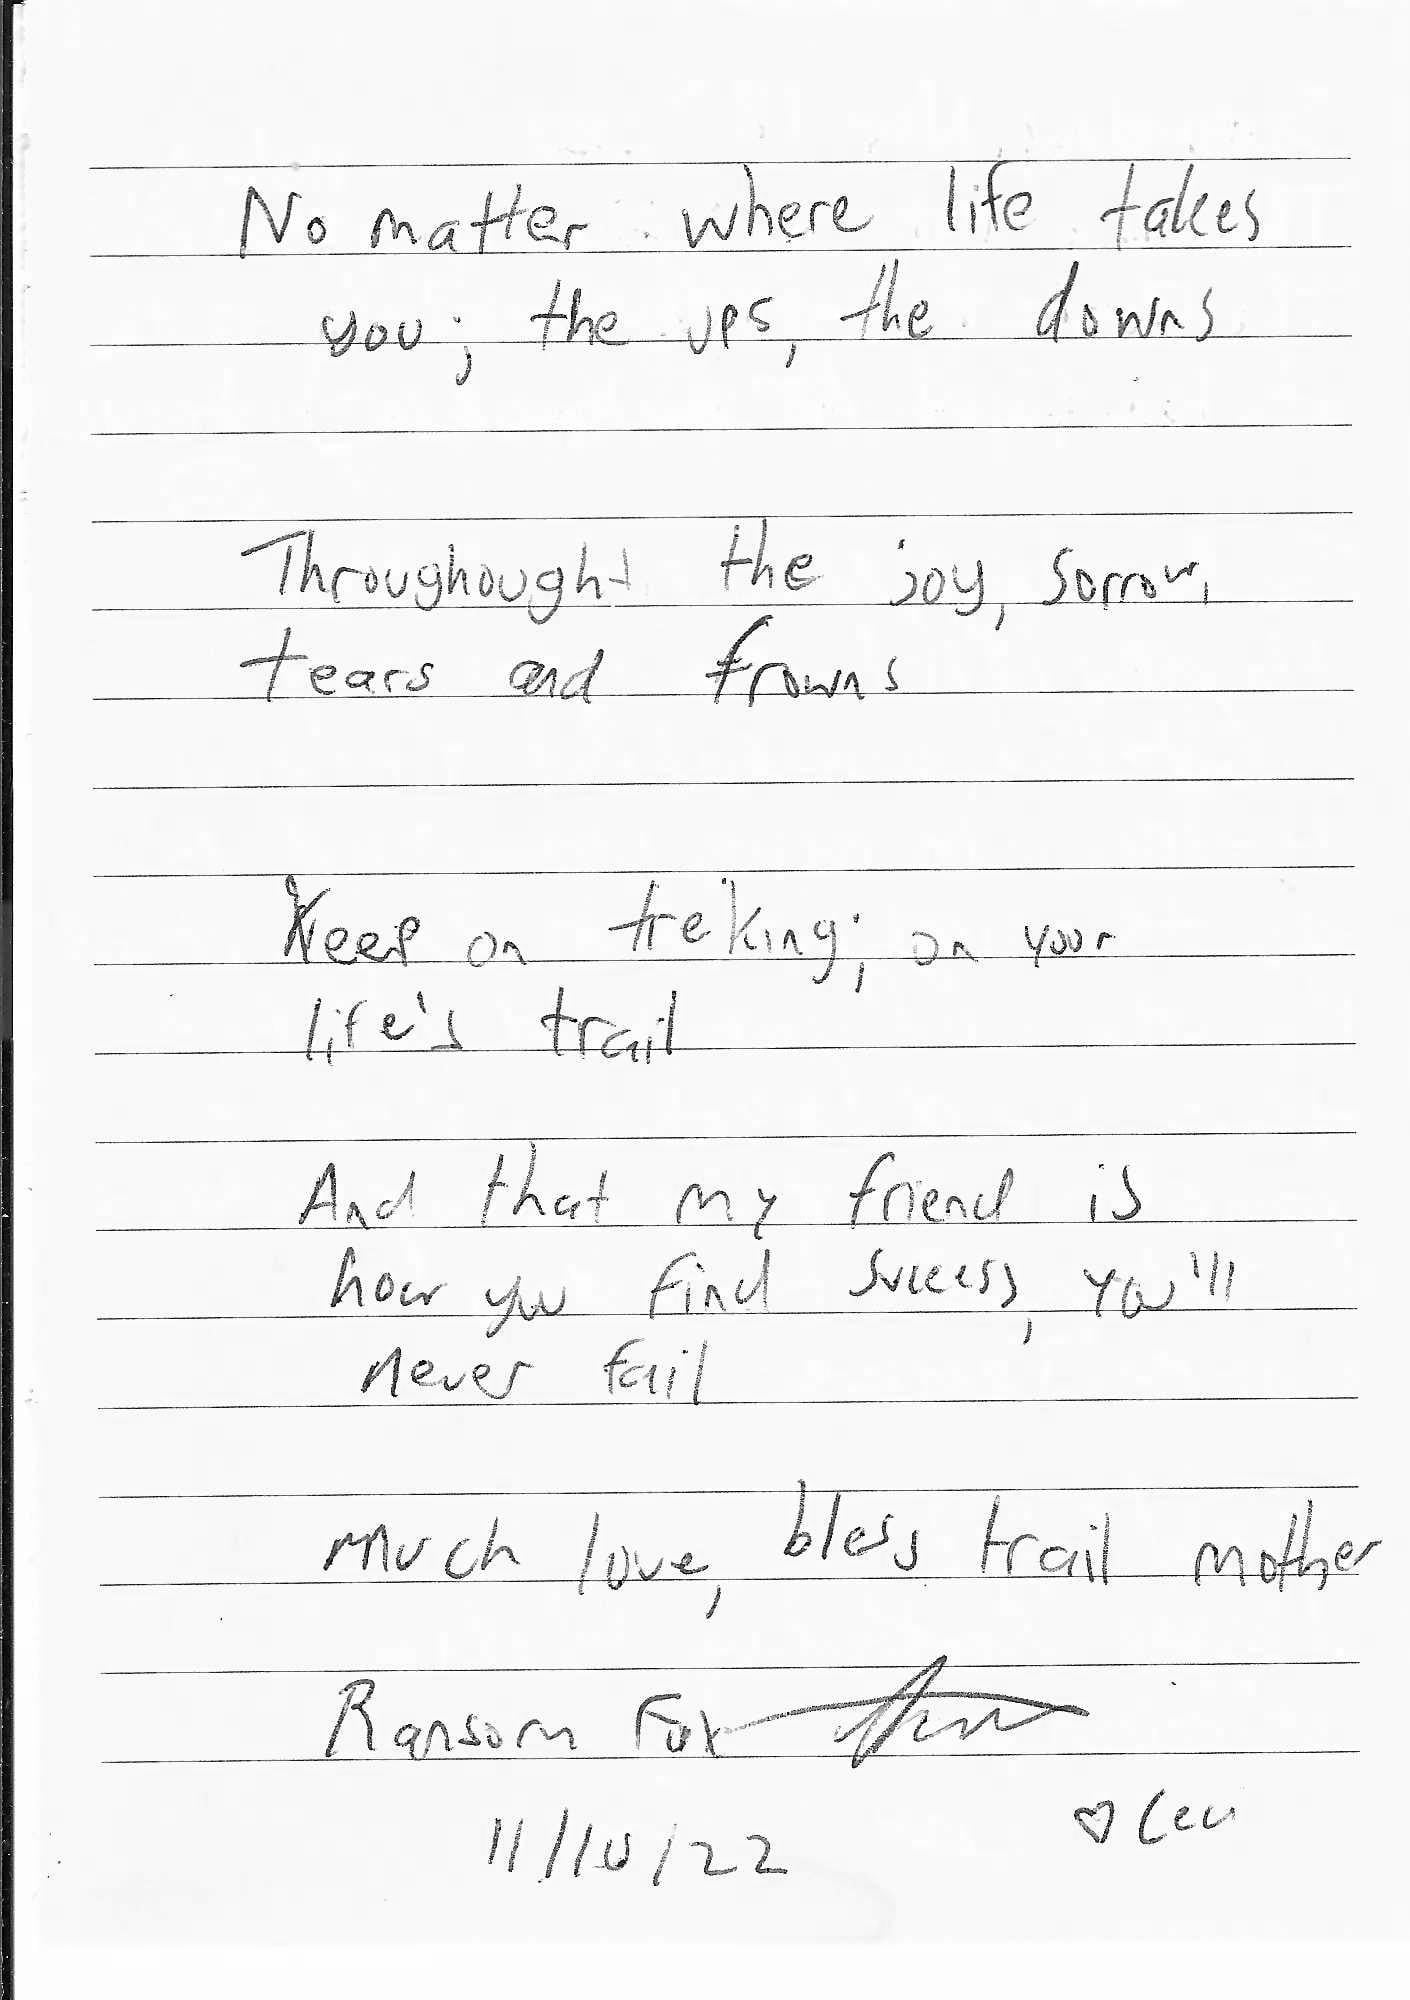 No matter where life takes
you; the ups, the downs
Throughought the joy, sorrow,
tears and frowns
Keep on treking; on your
life's trail
And that my friend is
how you find success, you'll
never fail
Much love, bless trail mother
Ransom Fox
11/10/22